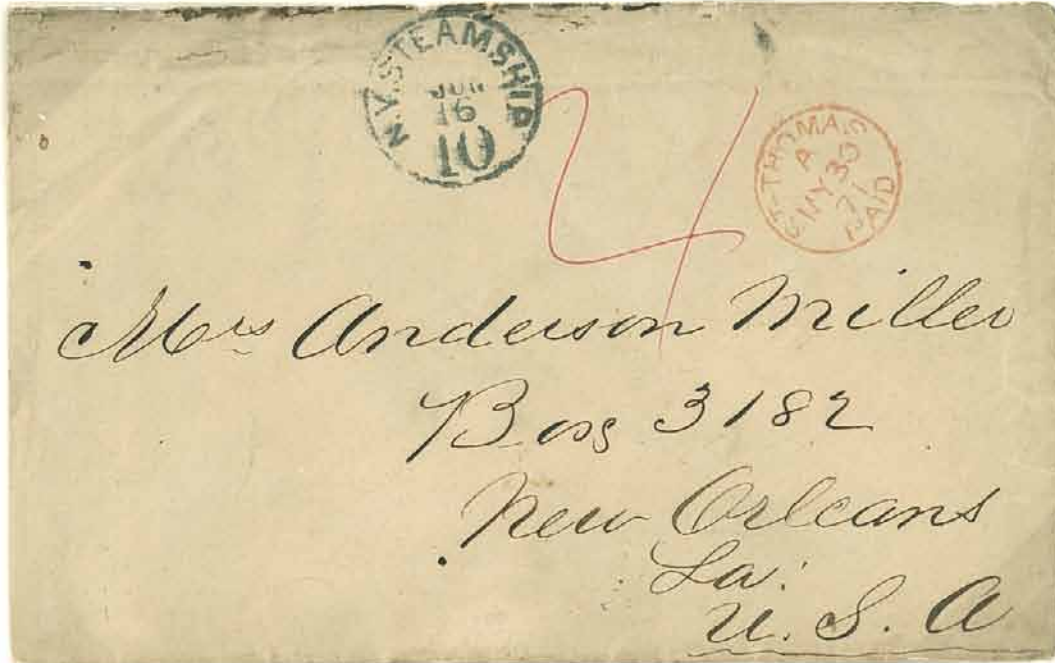 N.Y. STEAMSHIP
JUN
16
10
4
ST-THOMAS
A
MY 30
71
PAID
Mrs Anderson Miller
Box 3182
New Orleans
La:
U. S. A